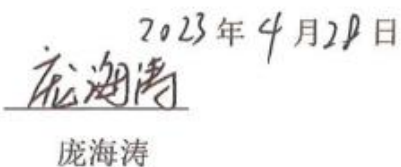 2023年4月28日
庞海涛
庞海涛